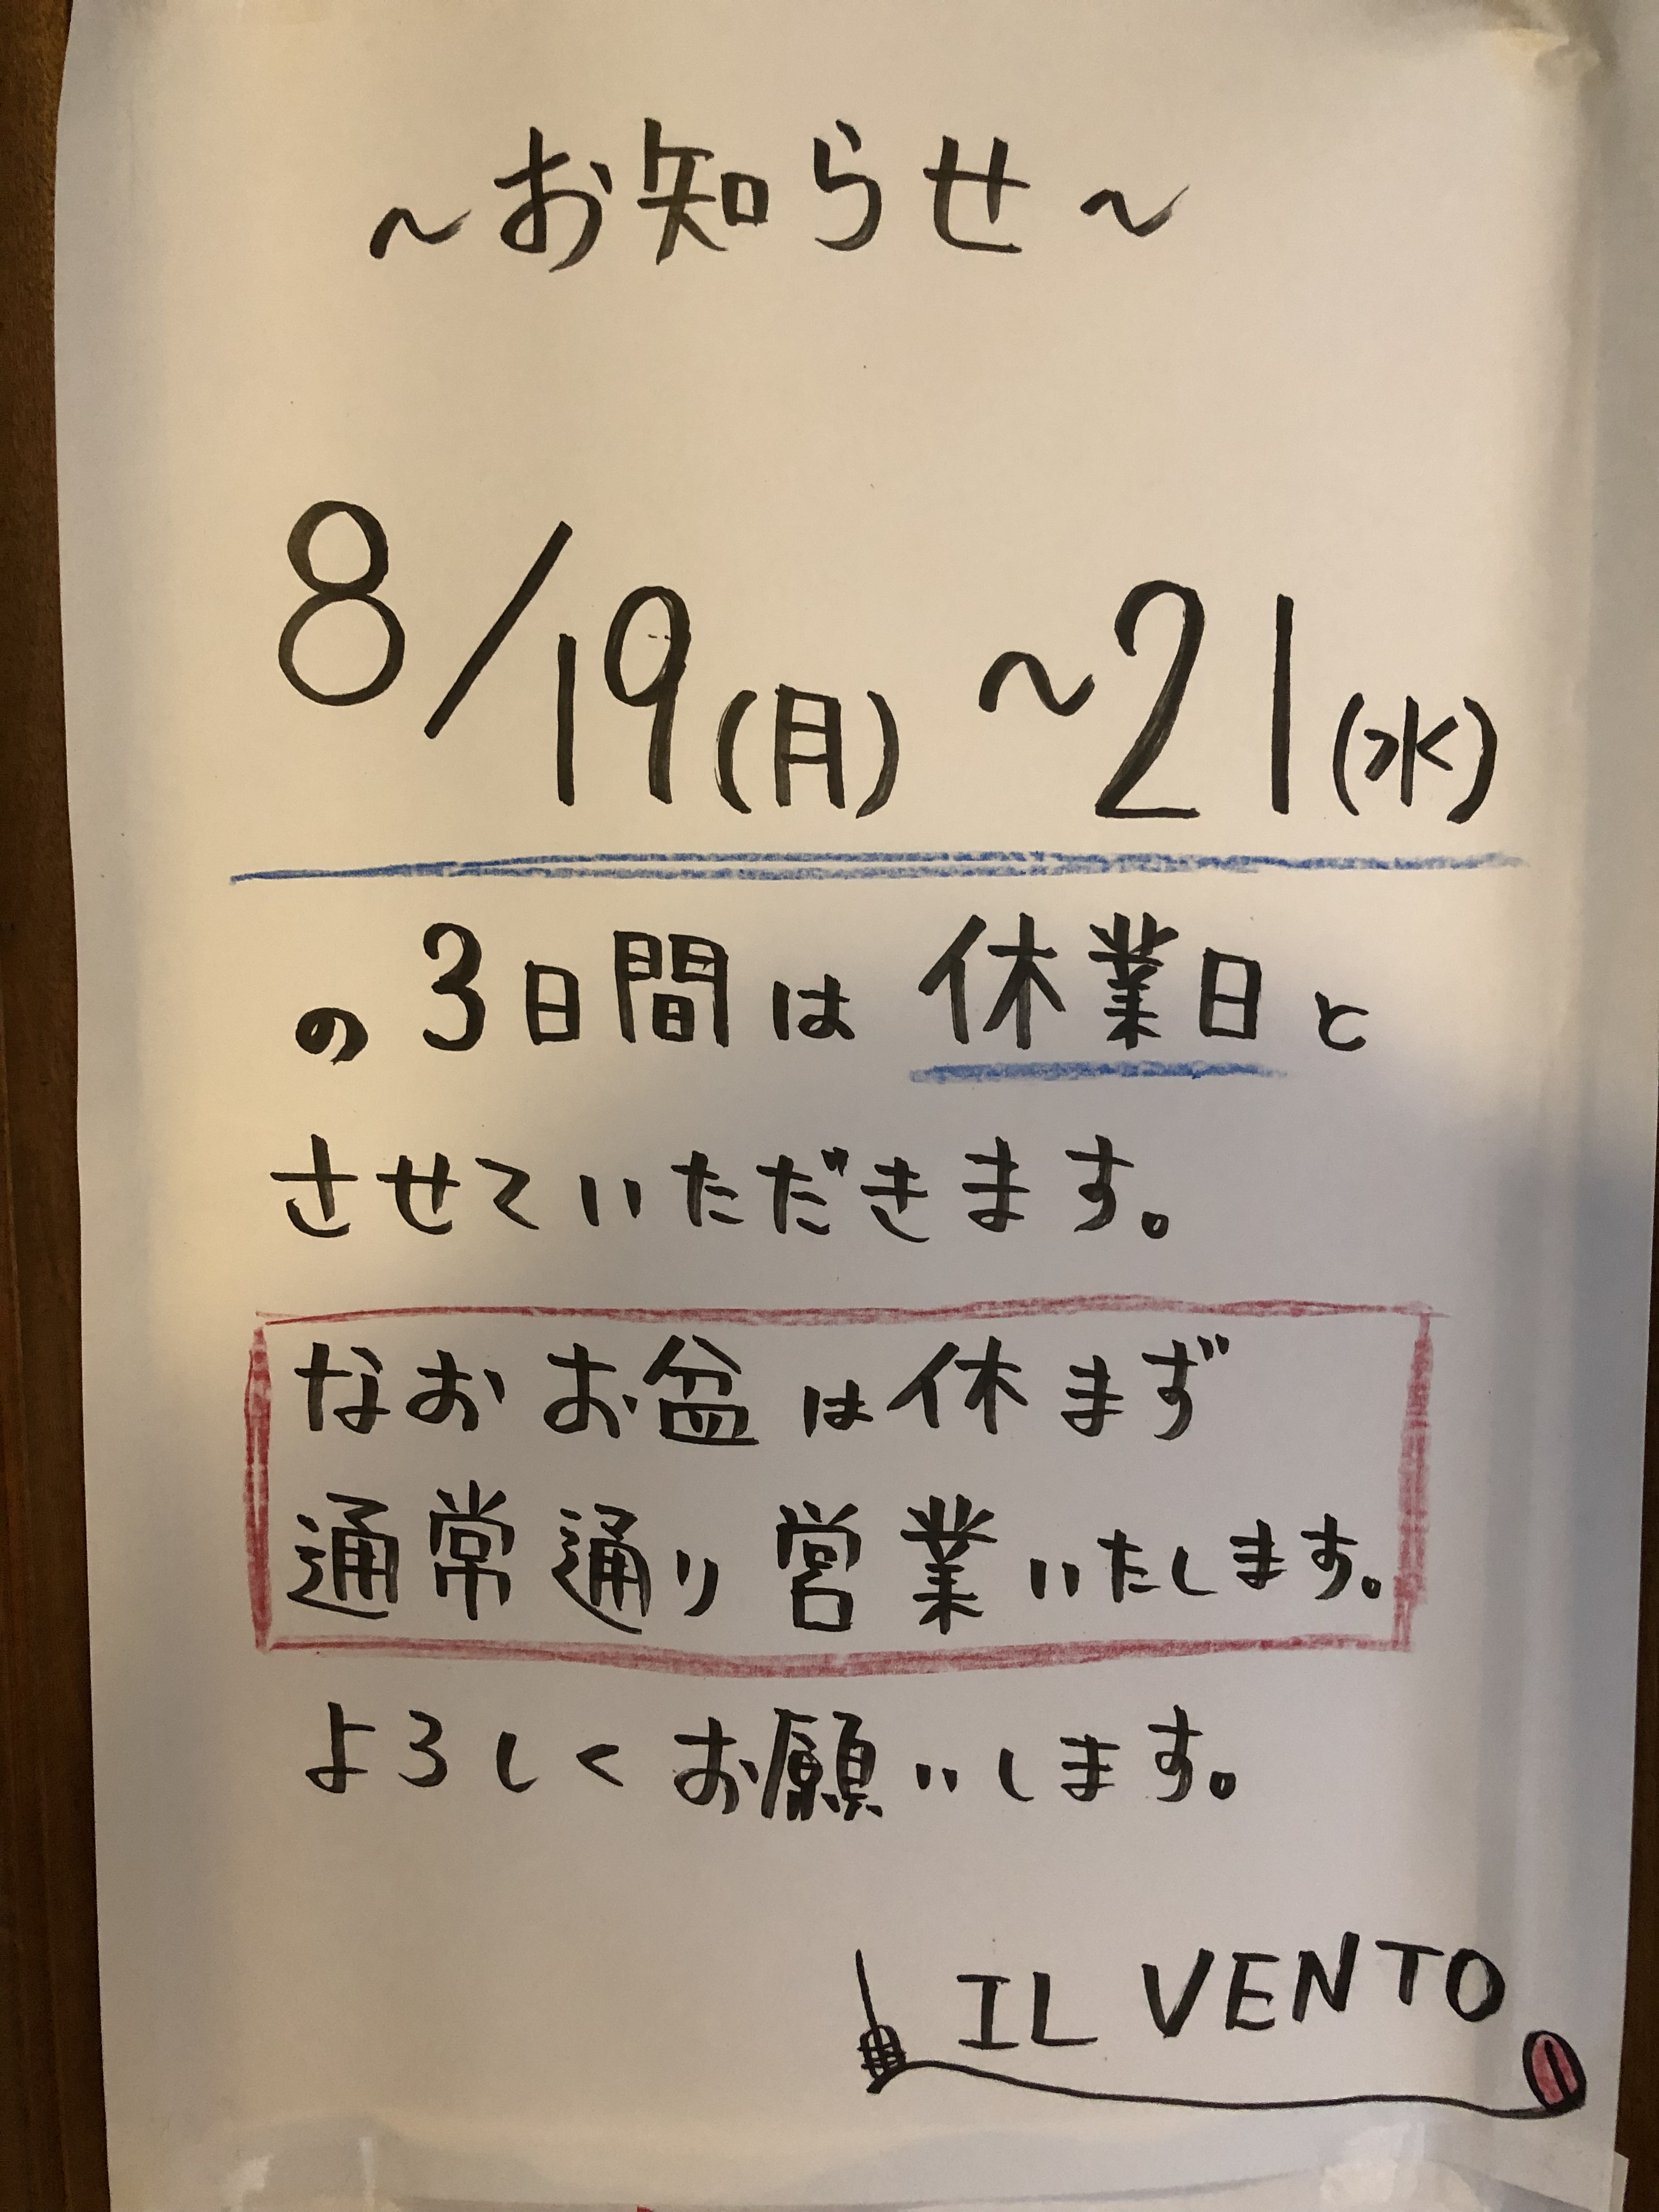 ～お知らせ～
8/19(月)～21(水)
の3日間は休業日と
させていただきます。
なおお盆は休まず
通常通り営業いたします。
よろしくお願いします。
IL VENTO